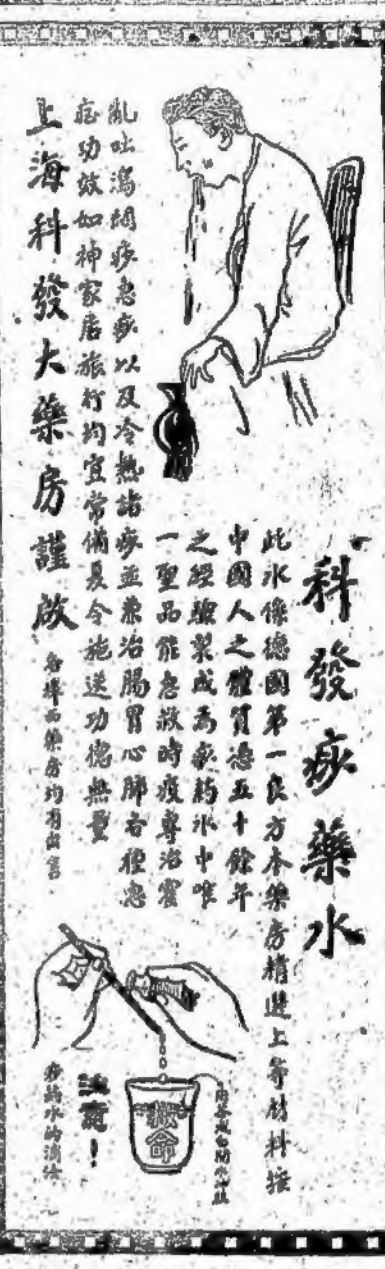 科發痧藥水
此水係德國第一良方本藥房精選上等材料按
中國人之體質憑五十餘年
之經驗製成為痧葯水中唯
一聖品能急救時疫專治霍
亂吐瀉悶痧急痧以及冷熱諸痧並兼治腸胃心肺各種急
症功效如神家居旅行均宜常備夏令施送功德無量
上海科發大藥房謹啟
各埠西藥房均有出售
用茶或白開水沖服
救命
注意！
痧葯水的滴法